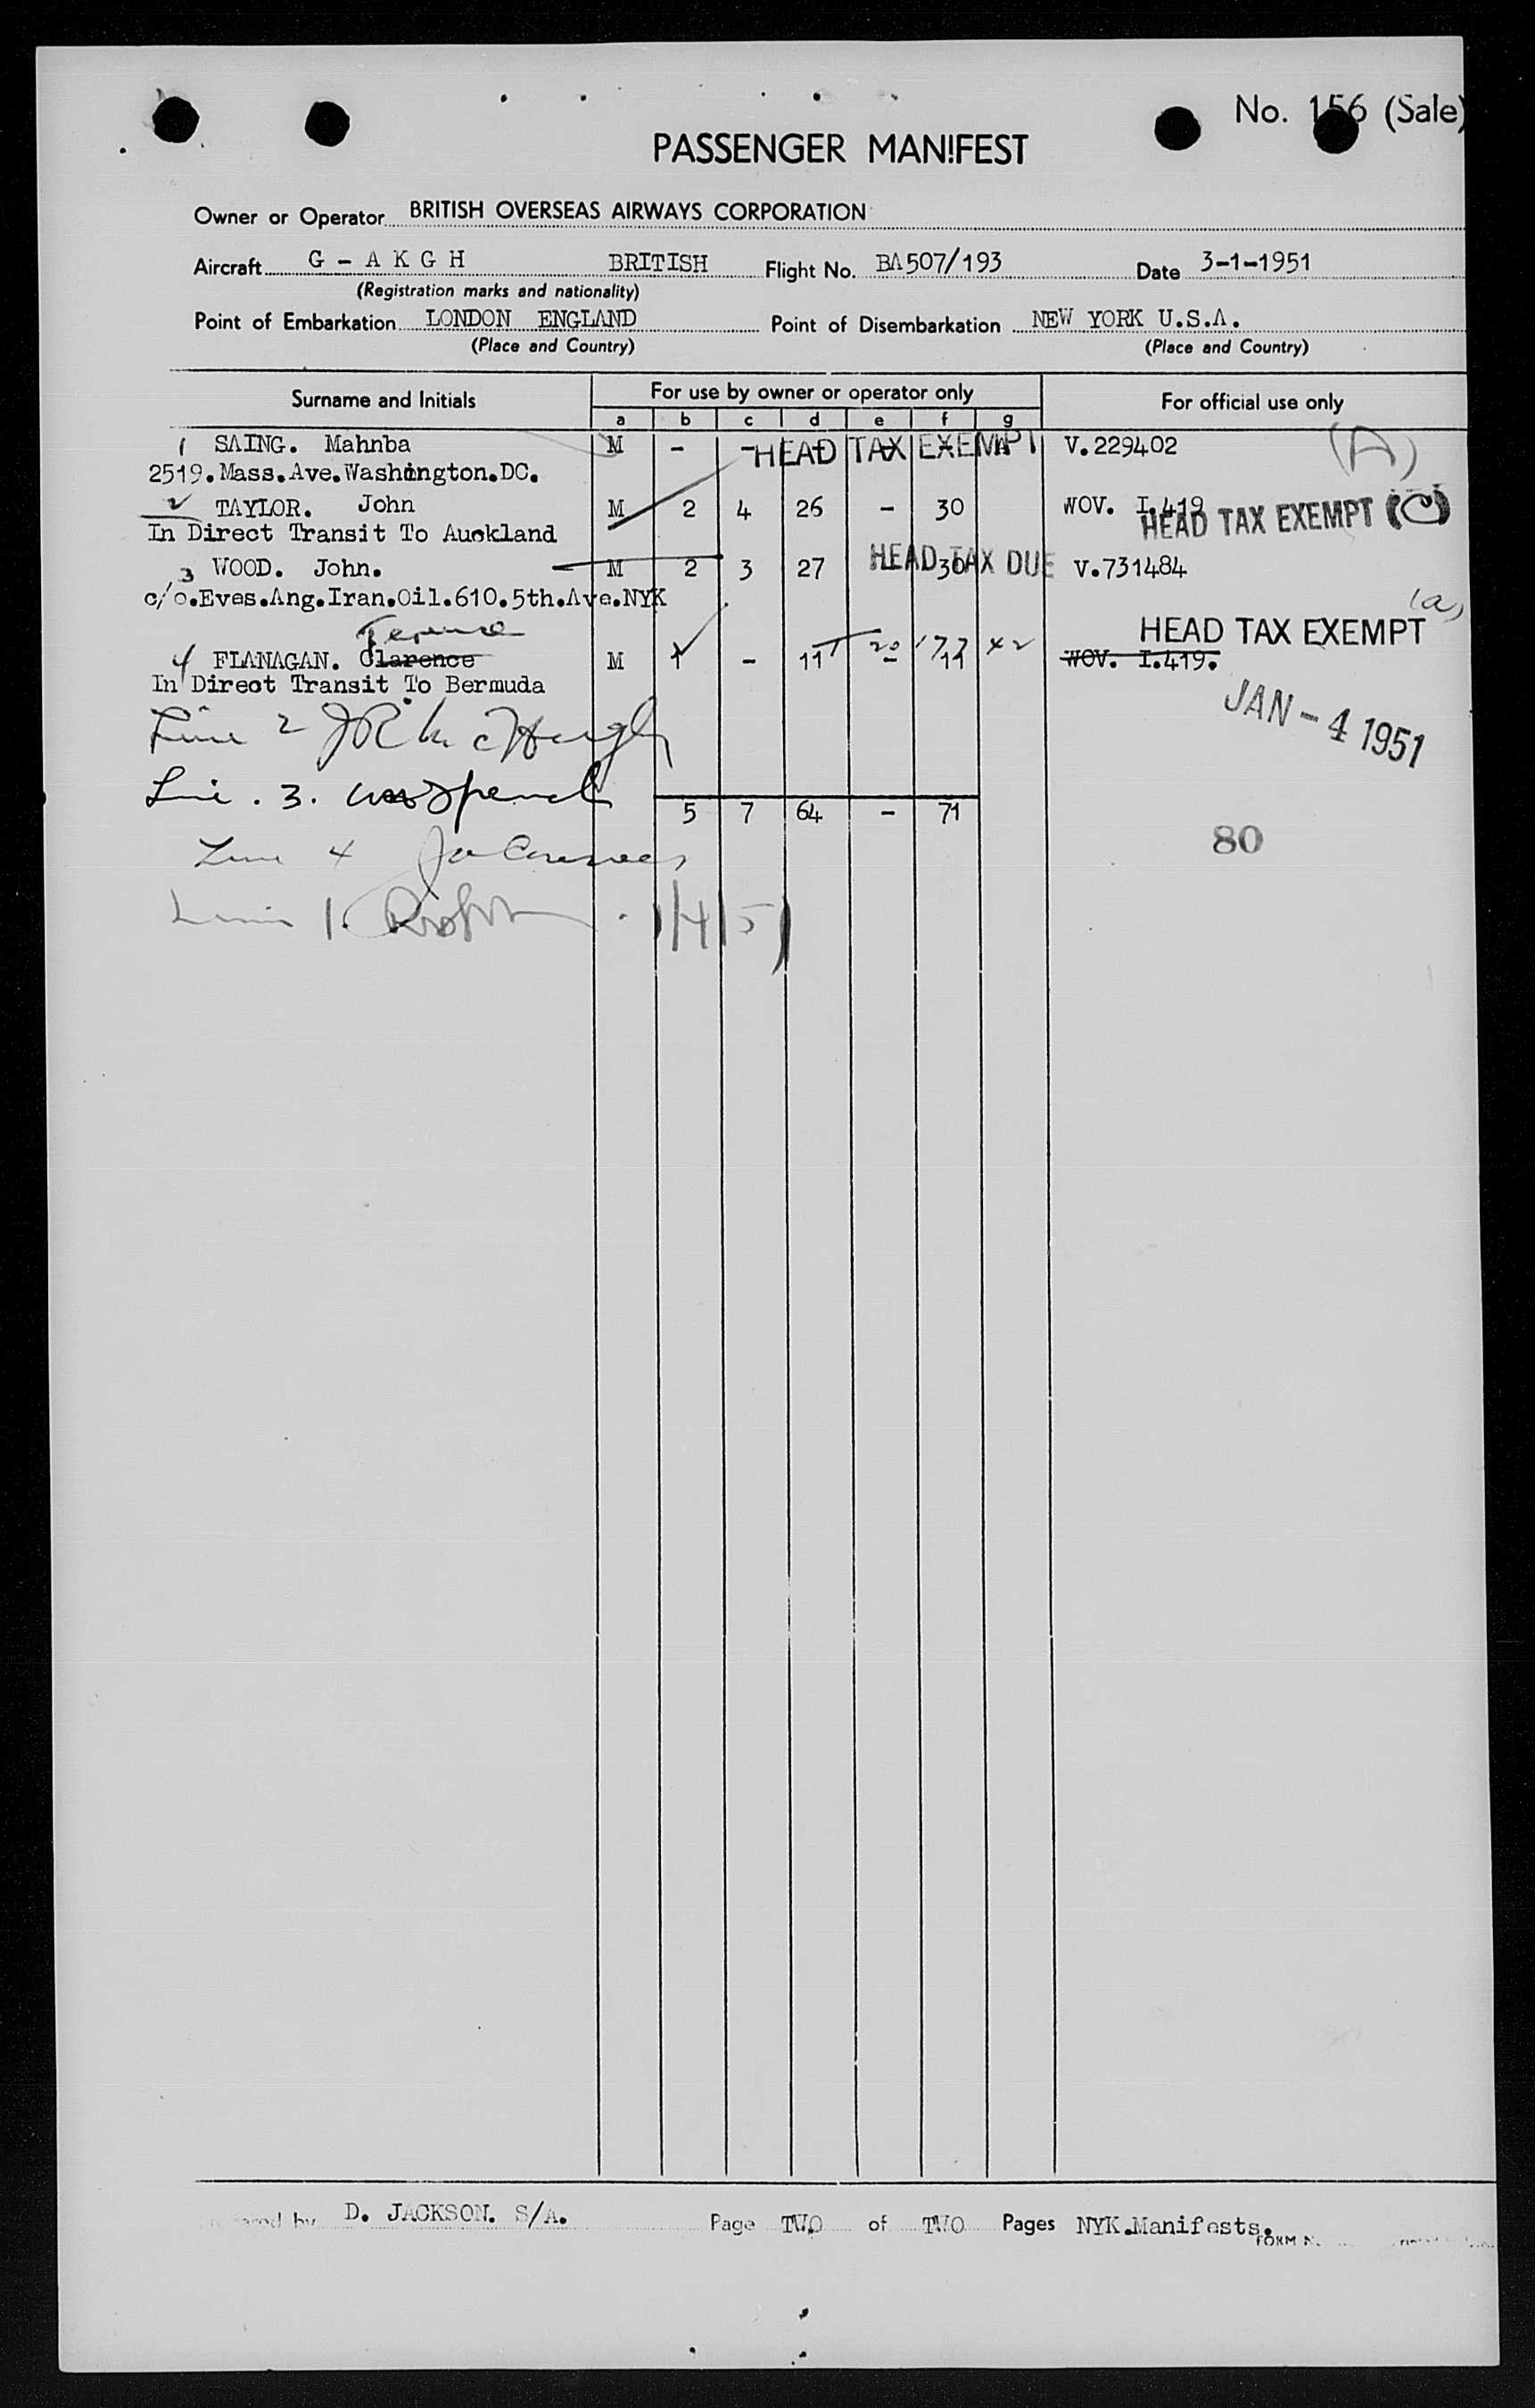 No. 156 (Sale)
PASSENGER MANIFEST
Owner or Operator BRITISH OVERSEAS AIRWAYS CORPORATION
Aircraft G - A K G H BRITISH Flight No. BA507/193 Date 3-1-1951
(Registration marks and nationality)
Point of Embarkation LONDON ENGLAND Point of Disembarkation NEW YORK U.S.A.
(Place and Country) (Place and Country)
Surname and Initials For use by owner or operator only For official use only
a b c d e f g
1 SAING. Mahnba M - - HEAD TAX EXEMPT V.229402 (A)
2519.Mass.Ave.Washington.DC.
2 TAYLOR. John M 2 4 26 - 30 WOV. I.419
HEAD TAX EXEMPT (C)
In Direct Transit To Auckland
3 WOOD. John. M 2 3 27 HEAD TAX DUE 30 V.731484
c/o.Eves.Ang.Iran.Oil.610.5th.Ave.NYK
(a)
Terence HEAD TAX EXEMPT
4 FLANAGAN. Clarence M 1 - 11 - 11 WOV. I.419.
In Direct Transit To Bermuda
JAN - 4 1951
Line 2 J R McHugh
Line . 3.
5 7 64 - 71
80
Line 4
Line 1. 1/4/51
D. JACKSON. S/A. Page TWO of TWO Pages NYK.Manifests.
FORM